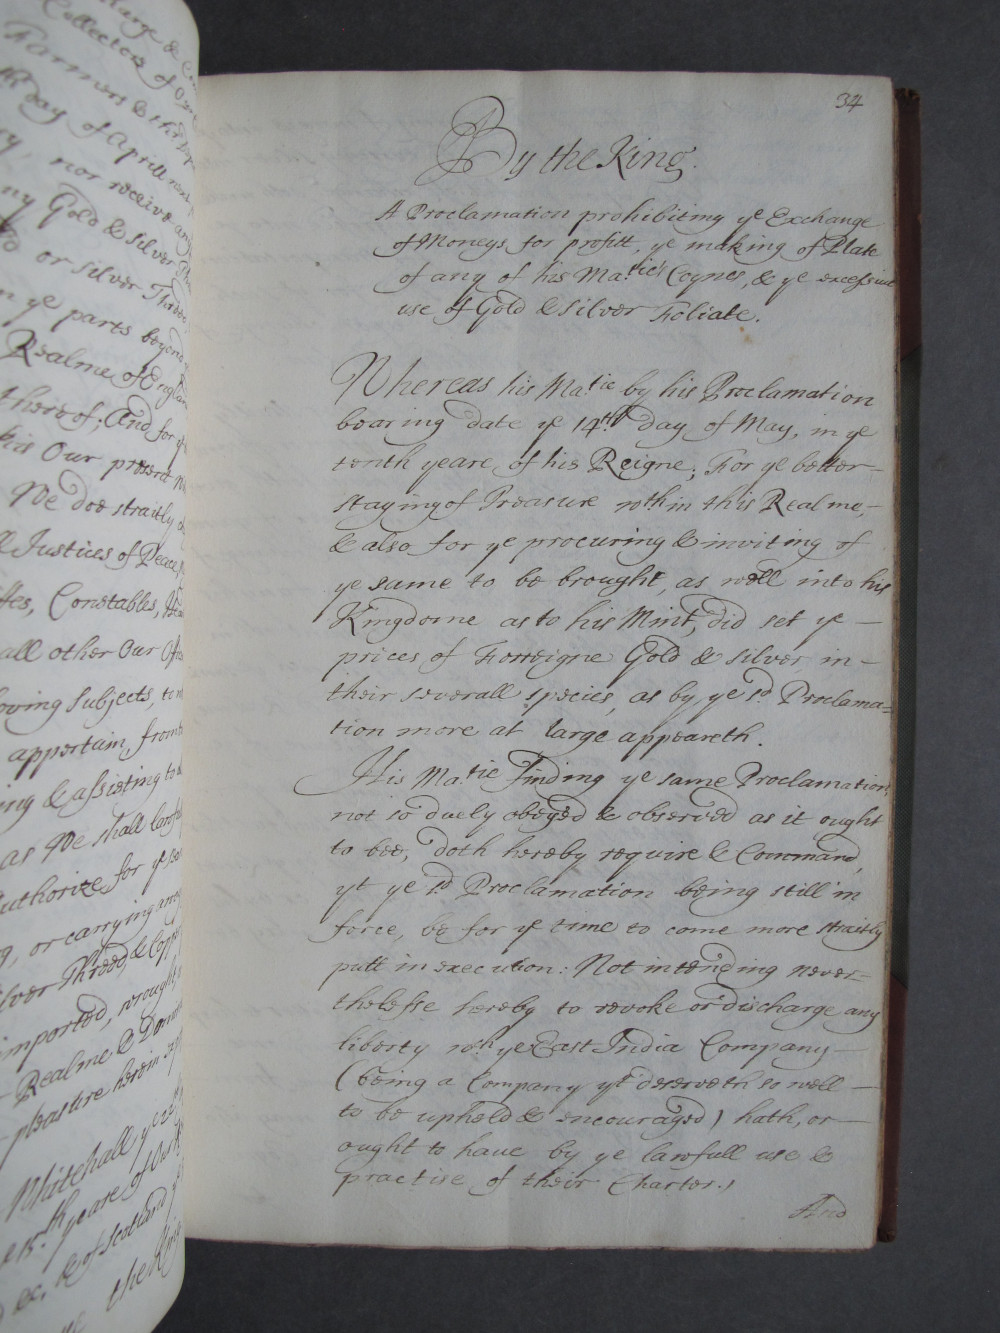 large &
Collectors of
Farmers & their
day of Aprill
nor receive any
ny Gold & silver
or silver Thread
n ye parts beyond
Realme of England
thereof; And for
his Our present
We doe straitly
Justices of Peace,
Constables,
all other Our
oving Subjects, to
appertain, from
ing & assisting to
as We shall
uthorize for ye
, or carrying
ilver Thread, & Copper
imported, wrought
Realme & Domin
pleasure herein
Whitehall ye 22th
15th yeare of
&c. & of Scotland
the King
34
By the King.
A Proclamation prohibiting ye Exchange
of Moneys for profitt, ye making of Plate
of any of his Matie's Coynes, & ye excessive
use of Gold & Silver Foliate.
Whereas his Matie by his Proclamation
bearing date ye 14th day of May, in ye
tenth yeare of his Reigne; For ye better-
staying of Treasure within this Realme,-
& also for ye procuring & inviting of
ye same to be brought, as well into his
Kingdome as to his Mint, did set ye —
prices of Forreigne Gold & silver in -
their severall species, as by ye sd. Proclama=
tion more at large appeareth.
His Matie finding ye same Proclamation,
not so duely obeyed & observed as it ought
to bee, doth hereby require & Command,
yt ye sd Proclamation being still in
force, be for ye time to come more straitly
putt in execution: Not intending never=
thelesse hereby to revoke or discharge any
liberty wch. ye East India Company —
(being a Company yt deserveth so well —
to be upheld & encouraged) hath, or —
ought to have by ye lawfull use &
practise of their Charter.)
And